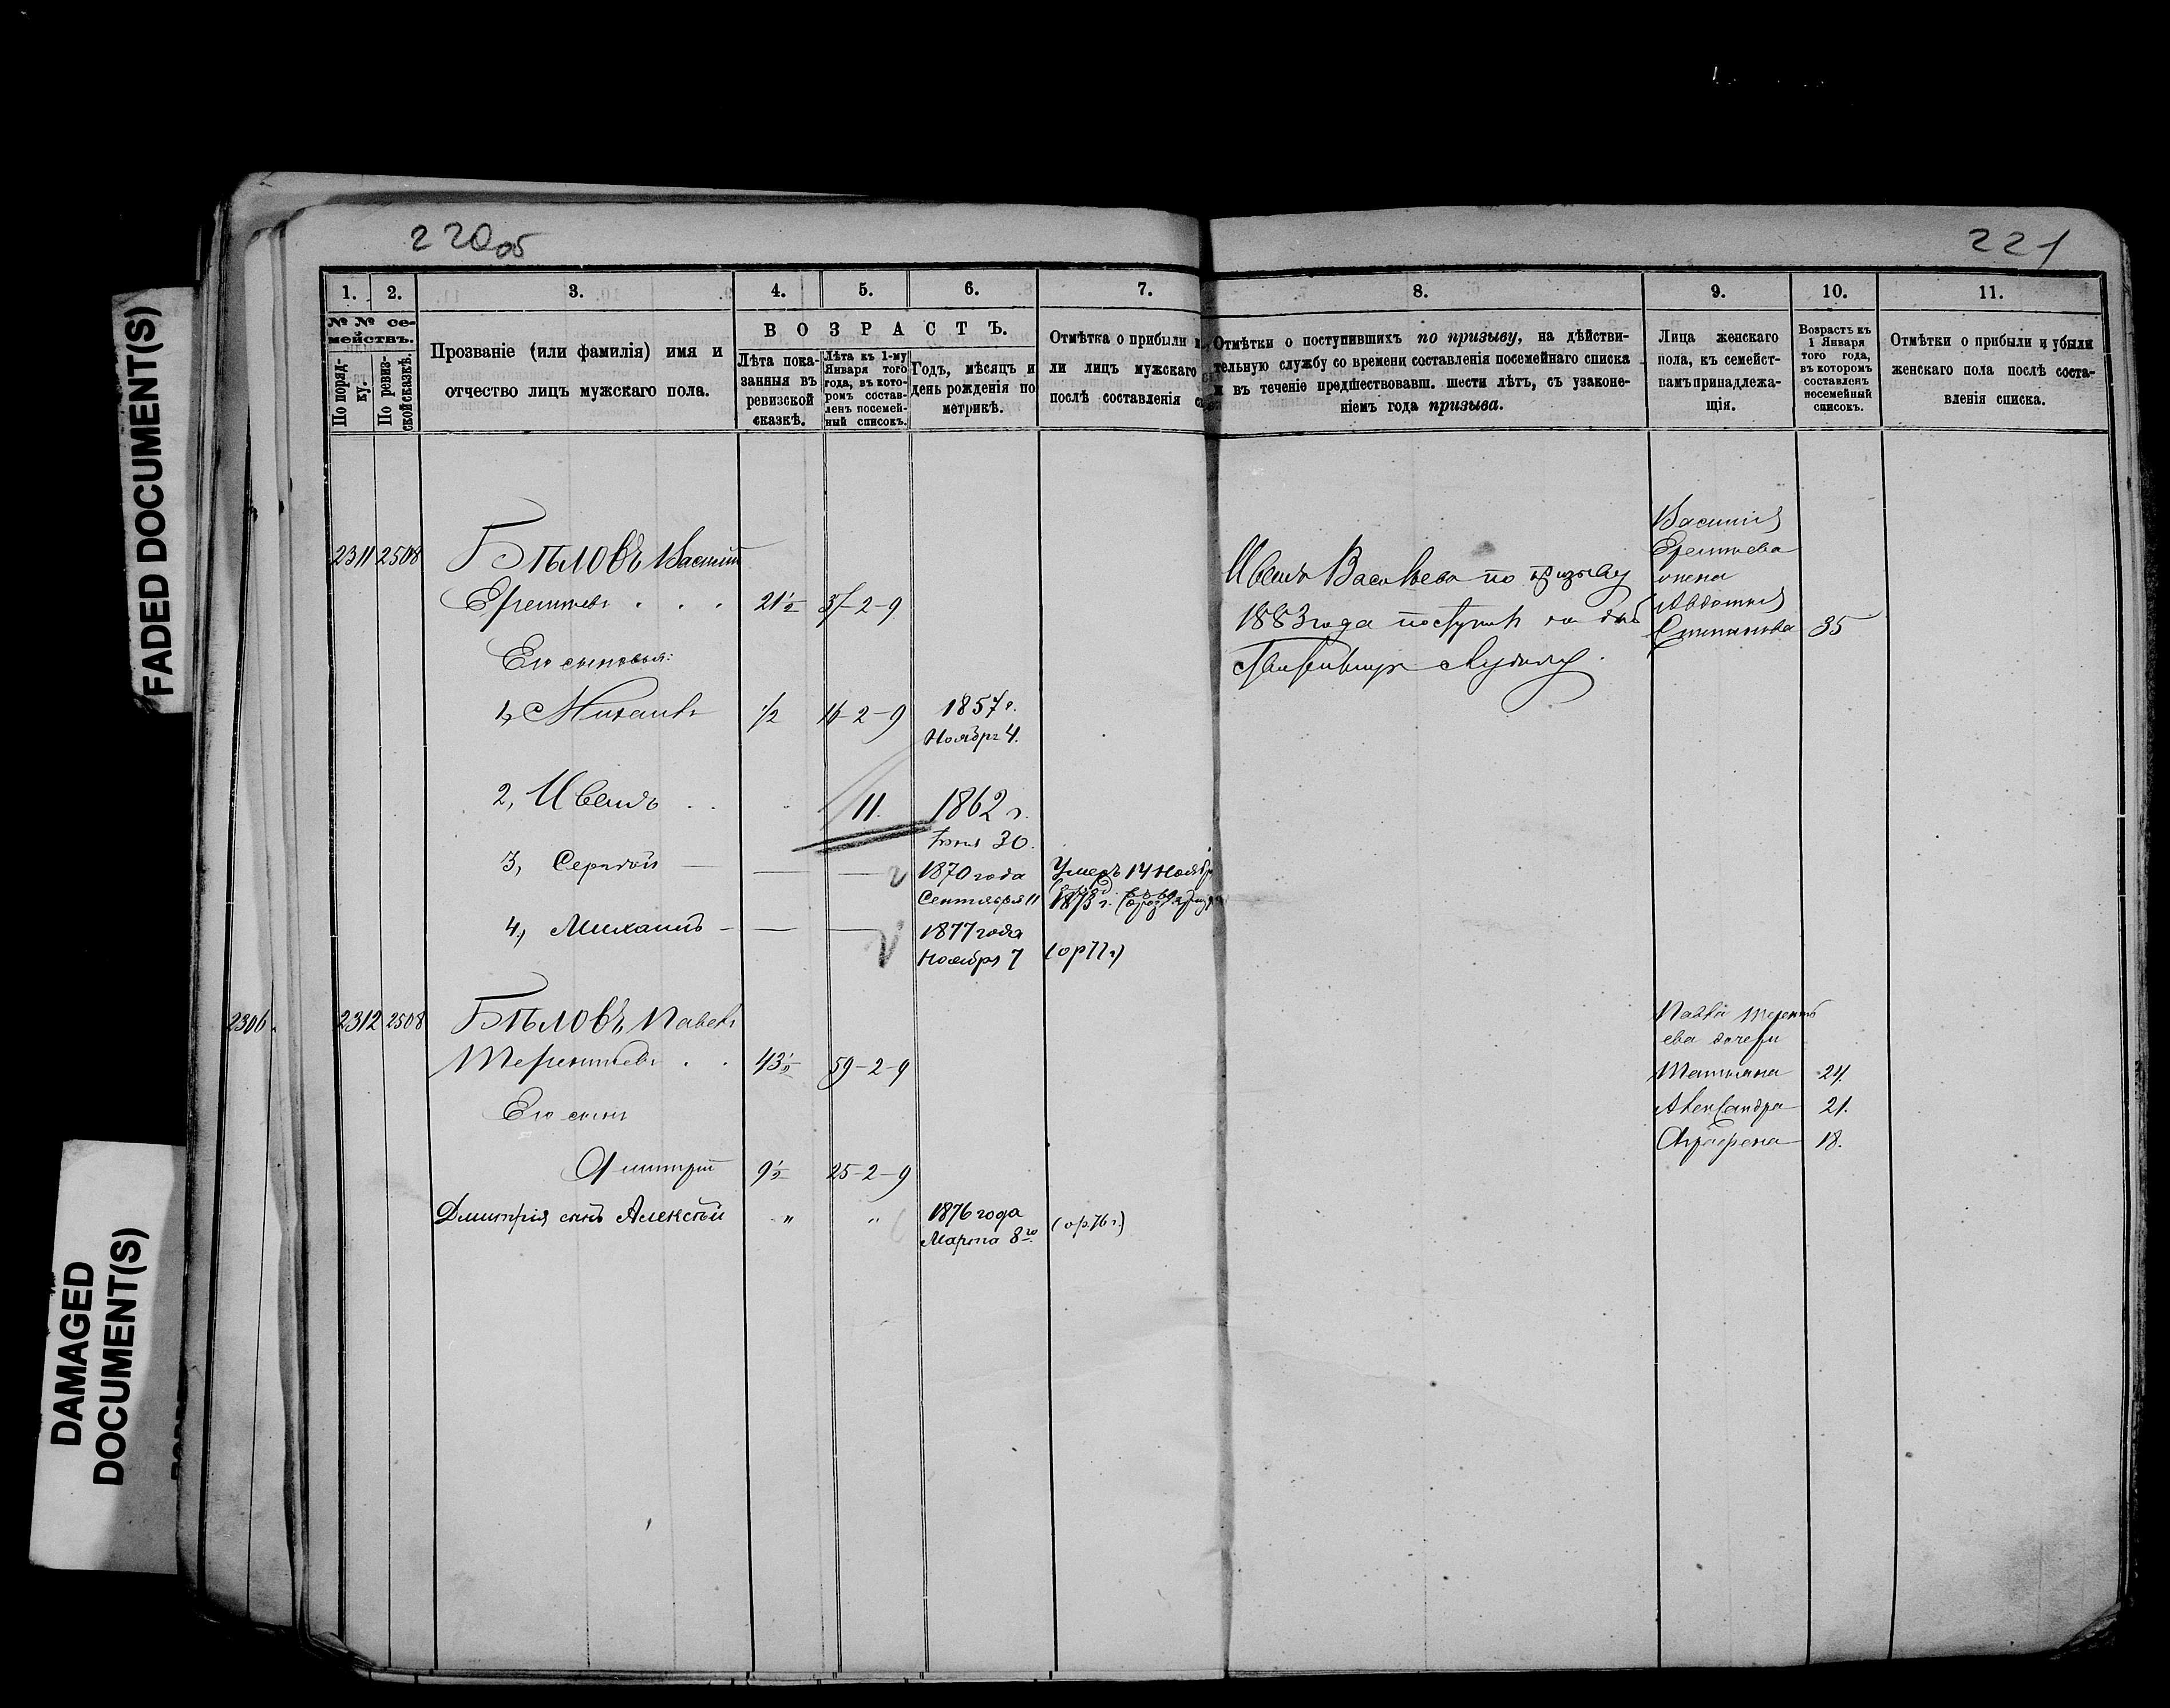 FADED DOCUMENT(S)
DAMAGED
DOCUMENT(S)
220об
221
1.
2.
3.
4.
5.
6.
7.
8.
9.
10.
11.
№ № се-
мействъ.
По поряд-
ку.
По ревиз-
ской сказкѣ.
Прозваніе (или фамилія) имя и
отчество лицъ мужскаго пола.
ВОЗРАСТЪ.
Лѣта пока-
занныя въ
ревизской
сказкѣ.
Лѣта къ 1-му
Января того
года, въ кото-
ромъ состав-
ленъ посемей-
ный списокъ.
Годъ, мѣсяцъ и
день рожденія по
метрикѣ.
Отмѣтка о прибыли и
ли лицъ мужскаго
послѣ составленія
Отмѣтки о поступившихъ по призыву, на дѣйстви-
тельную службу со времени составленія посемейнаго списка
и въ теченіе предшествовавш. шести лѣтъ, съ узаконе-
ніемъ года призыва.
Лица женскаго
пола, къ семейст-
вамъ принадлежа-
щія.
Возрастъ къ
1 Января
того года,
въ которомъ
составленъ
посемейный
списокъ.
Отмѣтки о прибыли и убыли
женскаго пола послѣ соста-
вленія списка.
2311 2508 Бѣловъ Василій
21½ 37-2-9
Его сыновья:
1, ½ 16-2-9 1857 г.
Ноября 4.
2, Иванъ 11. 1862 г.
30.
3, Сергѣй 1870 года Умеръ 14 Ноябр
Сентября 11 1873 г.
4, Михаилъ 1877 года
Ноября 7 (ор 77 г)
Иванъ Васильевъ по призыву
1883 года поступилъ на
Василія
жена
Авдотья
Степанова 35
2306
2312 2508 Бѣловъ Павелъ
Терентьевъ 43½ 59-2-9
Его сынъ
Дмитрій 9½ 25-2-9
Дмитрія сынъ Алексѣй " " 1876 года (ор 76 г.)
Марта 8го
Павла Терентъ
ева дочери
Татьяна 24.
Александра 21.
Аграфена 18.